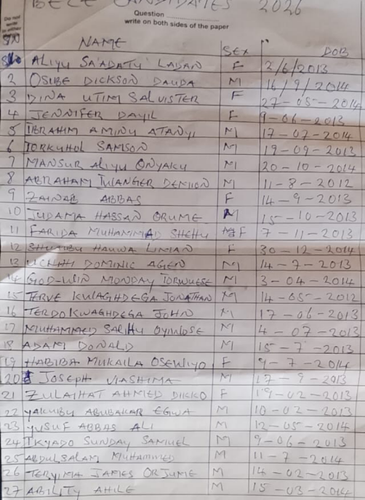 BECE CANDIDATES 2026
Question
write on both sides of the paper
S/No NAME SEX DOB
1 ALIYU SA'ADATU LADAN F 2/6/2013
2 OSIBE DICKSON DAUDA M 16/9/2014
3 DINA UTIM SALVISTER F 27-05-2014
4 JENNIFER DAYIL F 9-06-2013
5 IBRAHIM AMINU ATANYI M 17-07-2014
6 TORKUHOL SAMSON M 19-09-2013
7 MANSUR ALIYU ONYAKU M 20-10-2014
8 ABRAHAM M 11-8-2012
9 ZAINAB ABBAS F 14-9-2013
10 JUDAMA HASSAN ORUME M 15-10-2013
11 FARIDA MUHAMMAD SHEHU F 7-11-2013
12 HAUWA LIMAN F 30-12-2014
13 DOMINIC AGEN M 14-7-2013
14 GODWIN MONDAY TORNUESE M 3-04-2014
15 TERVE KWAGHDEGA JONATHAN M 14-05-2012
16 TERDOO KWAGHDEGA JOHN M 17-06-2013
17 MUHAMMED SALIHU M 4-07-2013
18 ADAMI DONALD M 15-7-2013
19 HABIBA MUKAILA OSEWIYO F 9-7-2013
20 JOSEPH IASHIMA M 17-9-2013
21 ZULAIHAT AHMED DIKKO F 19-02-2013
22 YAKUBU ABUBAKAR EGWA M 10-02-2013
23 YUSUF ABBAS ALI M 12-05-2014
24 IKYADO SUNDAY SAMUEL M 9-06-2013
25 ABDULSALAM MUHAMMED M 11-7-2014
26 TERYIMA JAMES ORJUME M 14-02-2013
27 ABILITY AHILE M 15-03-2013